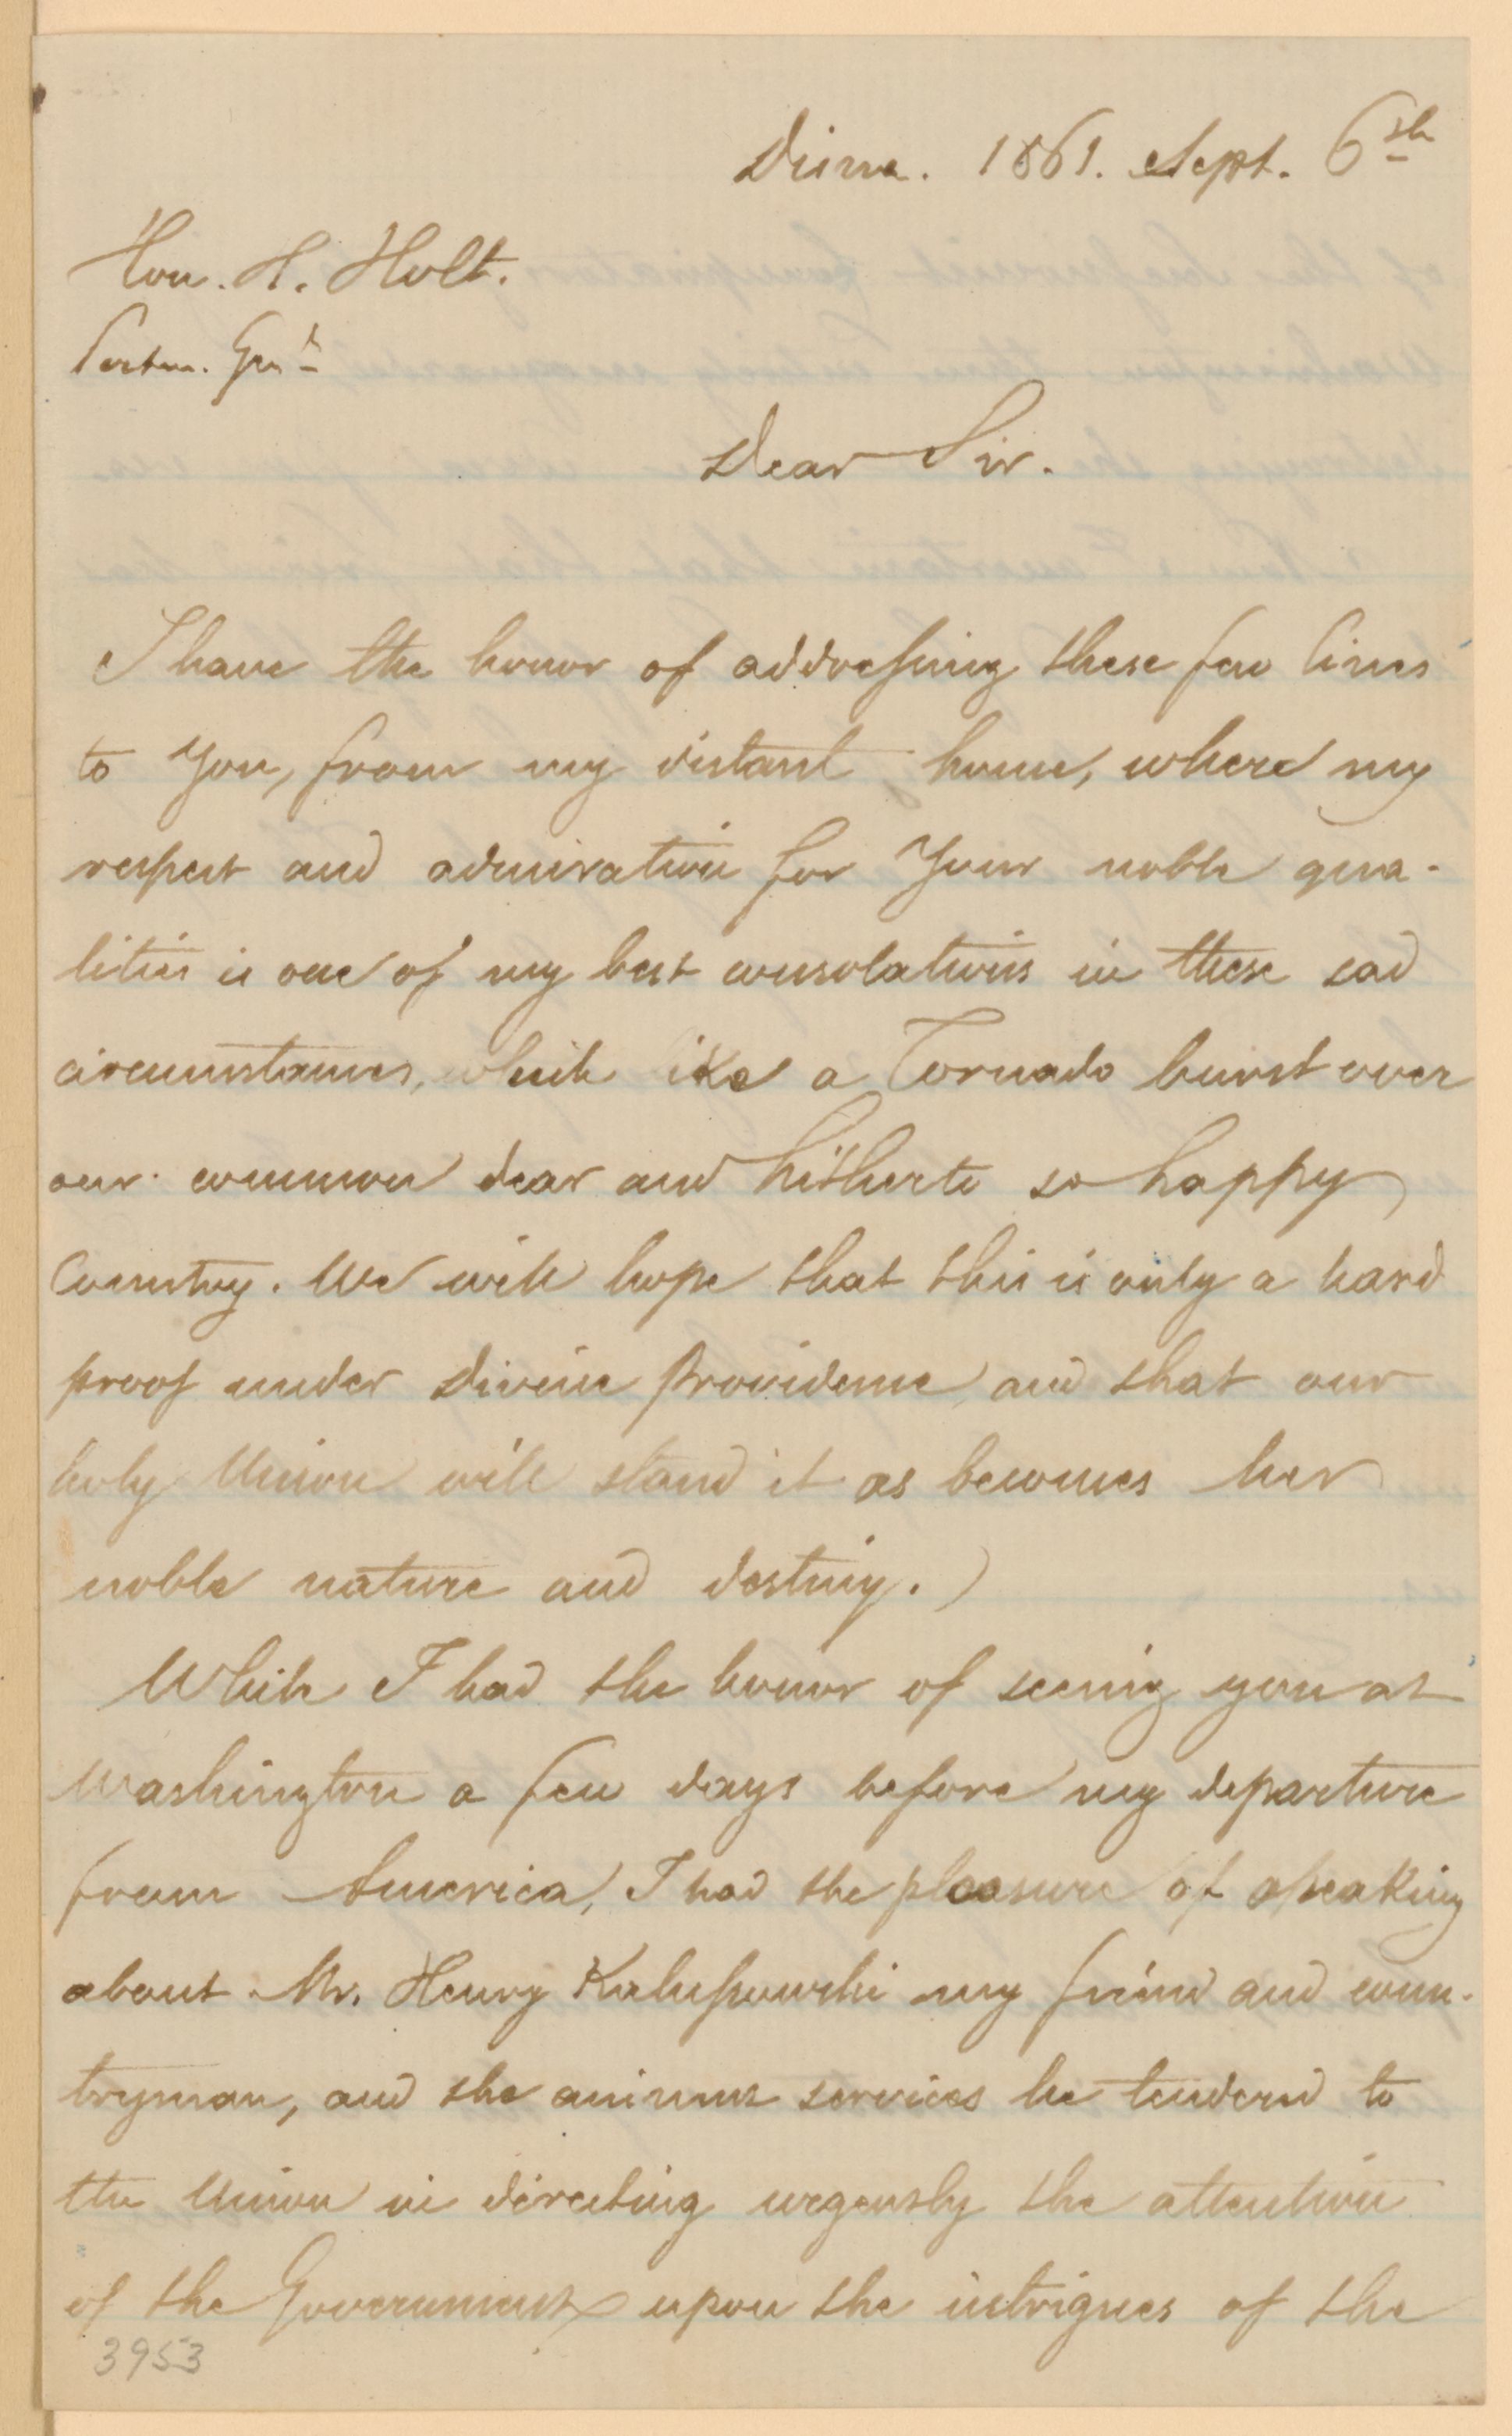 1861. Sept. 6th
Hon. H. Holt.
Postm. Genl
Dear Sir.
I have the honor of addressing these few lines
to You, from my distant home, where my
respect and admiration for Your noble qua-
lities is one of my best consolations in these sad
circumstances, which like a Tornado burst over
our common dear and hitherto so happy
Country. We will hope that this is only a hard
proof under Divine Providence and that our
holy Union will stand it as becomes her
noble nature and destiny.)
While I had the honor of seeing you at
Washington a few days before my departure
from America, I had the pleasure of speaking
about Mr. Henry Kalussowski my friend and coun-
tryman, and the services he tenderd to
the Union in directing urgently the attention
of the Government upon the intrigues of the
3953